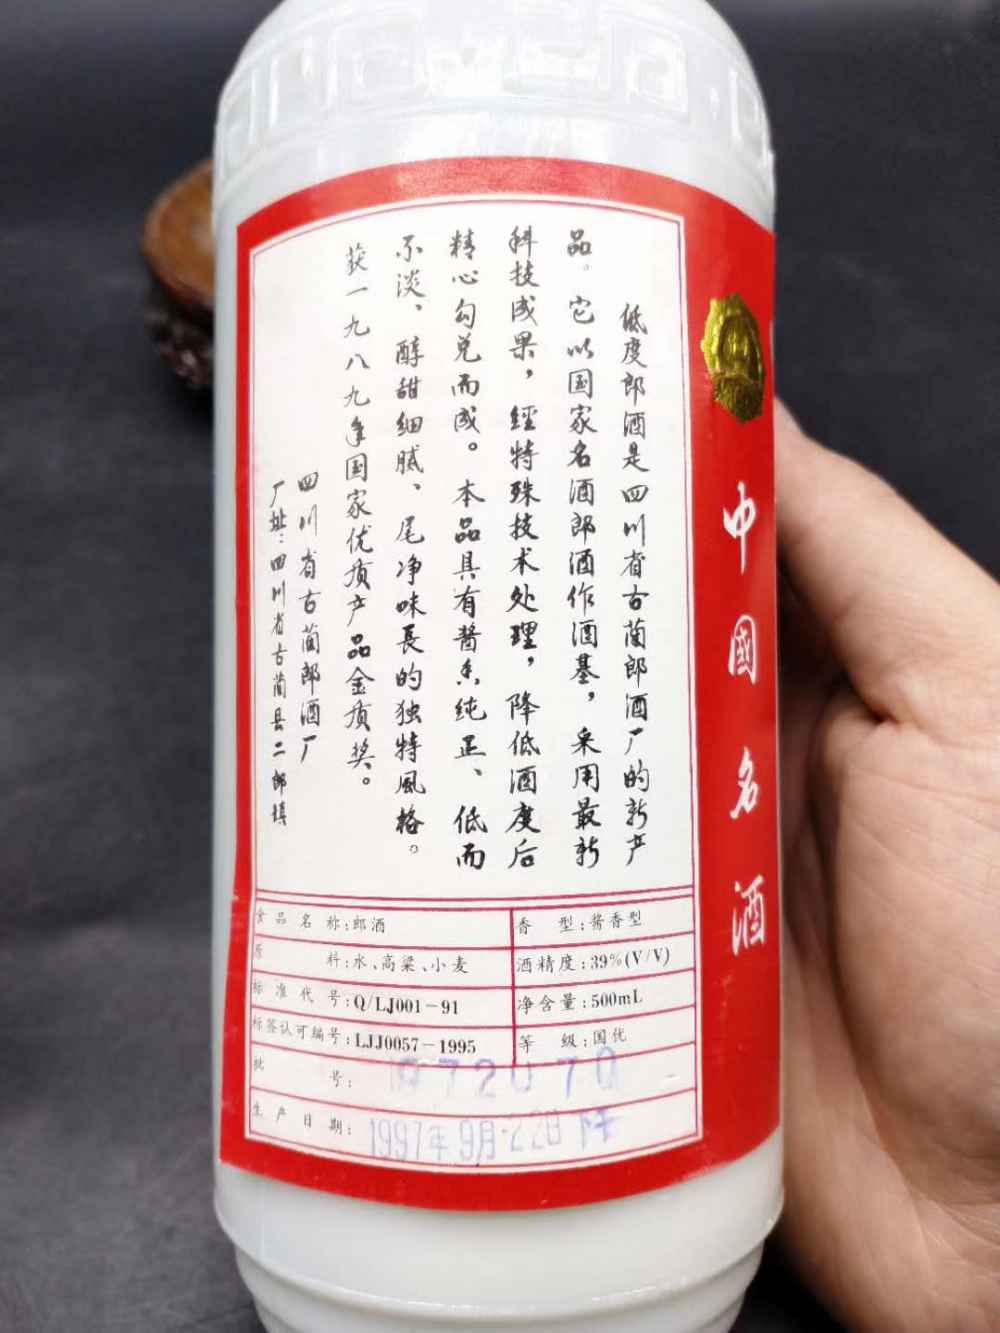 低度郎酒是四川省古蔺郎酒厂的新产
品。它以国家名酒郎酒作酒基，采用最新
科技成果，经特殊技术处理，降低酒度后
精心勾兑而成。本品具有酱香纯正、低而
不淡、醇甜细腻、尾净味長的独特風格。
获一九八九年国家优质产品金质奖。
四川省古蔺郎酒厂
厂址：四川省古蔺县二郎镇
中國名酒
食品名称:郎酒
香型:酱香型
原料:水、高粱、小麦
酒精度:39%(V/V)
标准代号:Q/LJ001-91
净含量:500mL
标签认可编号:LJJ0057-1995
等级:国优
批号:
生产日期:1997年9月22日